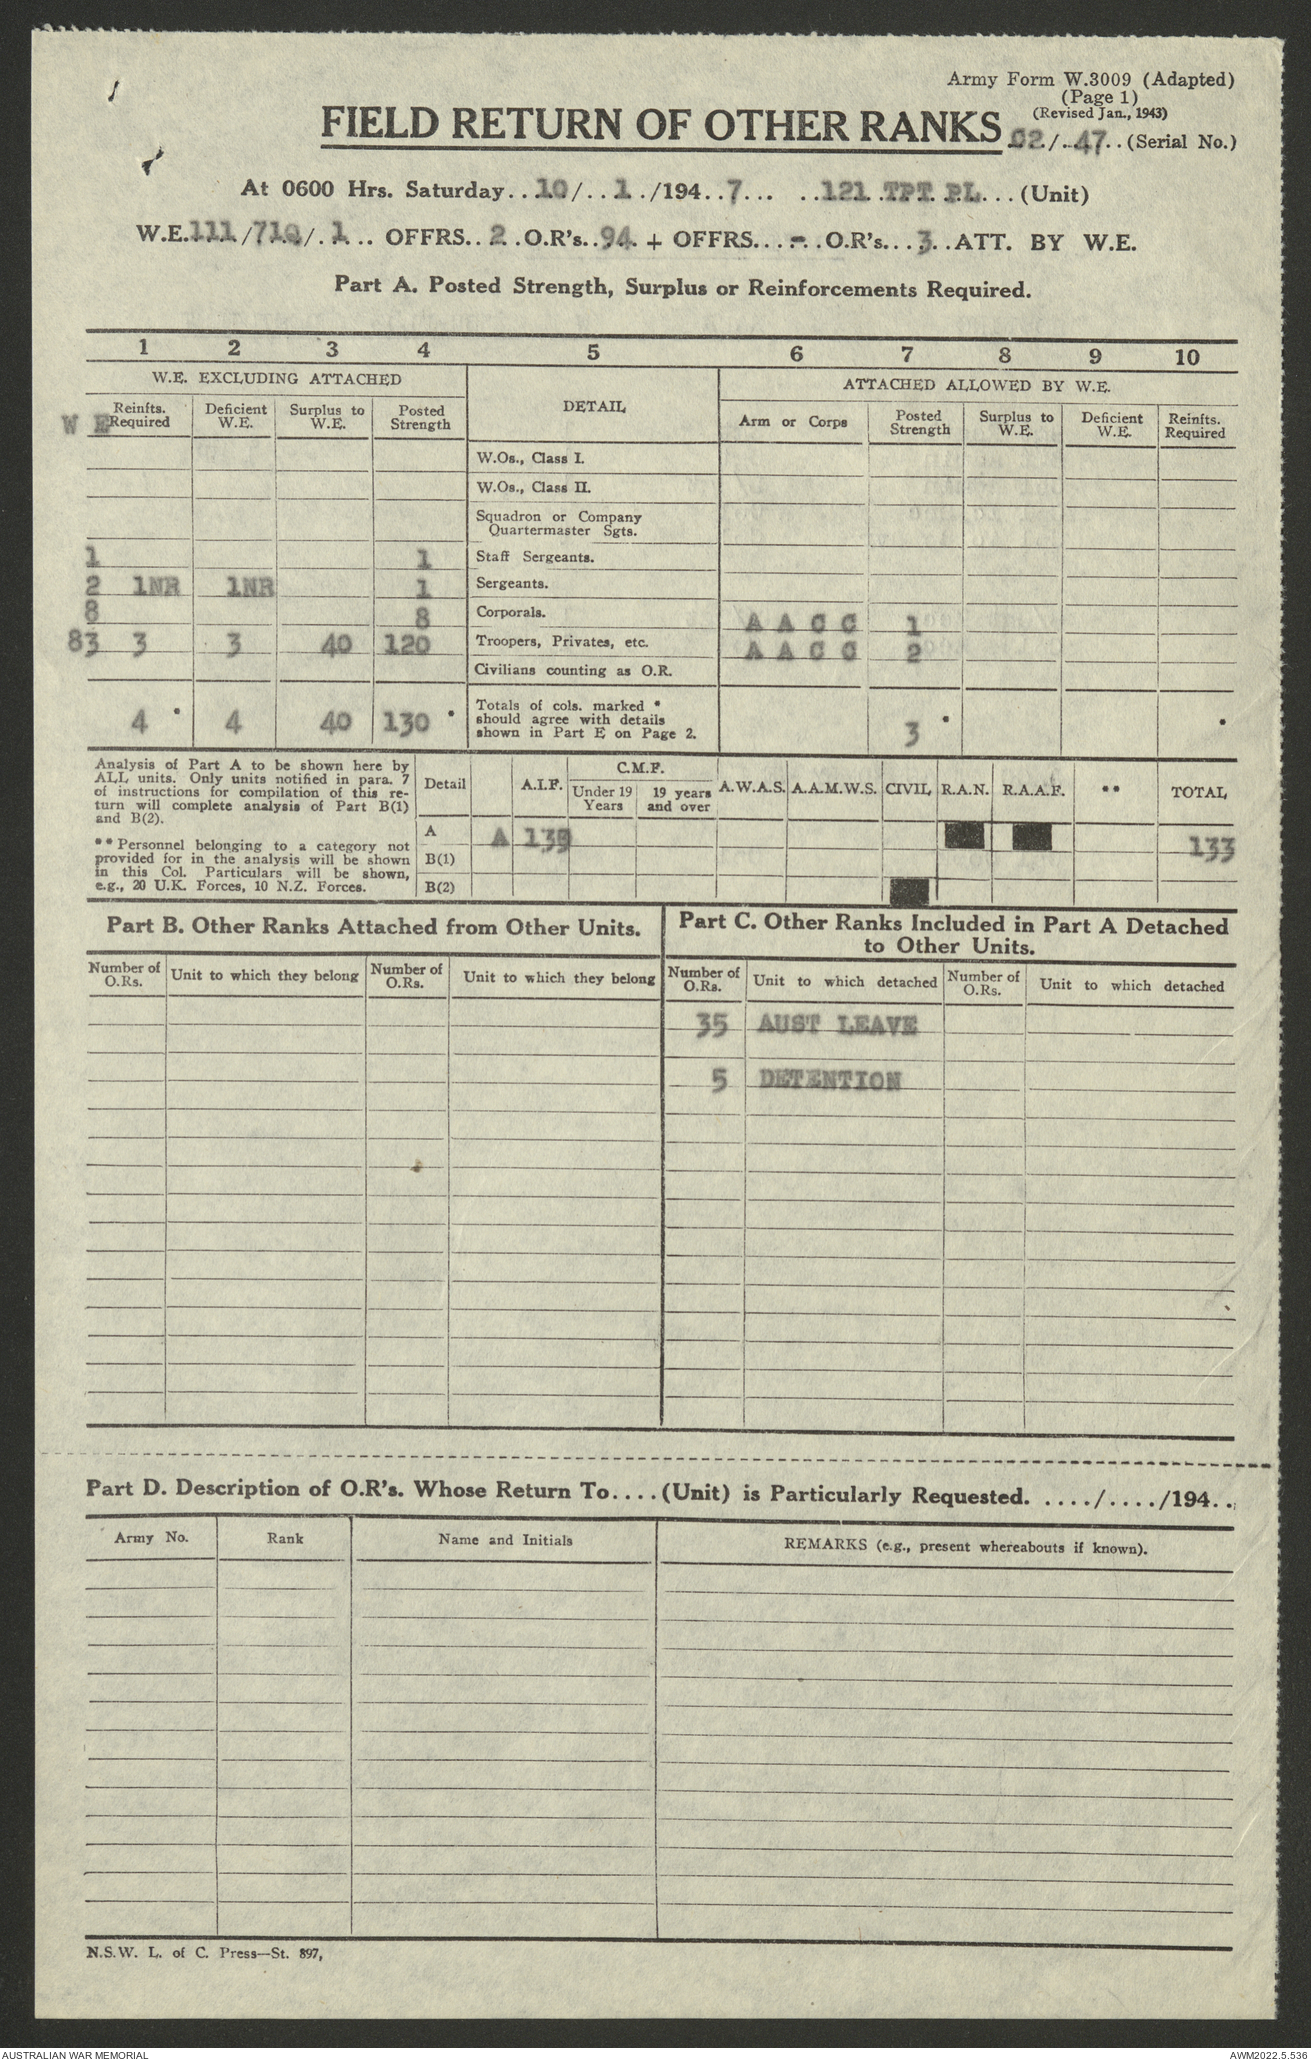 Army Form W.3009 (Adapted)
(Page 1)
(Revised Jan., 1943)
FIELD RETURN OF OTHER RANKS 02/.47..(Serial No.)
At 0600 Hrs. Saturday..10/..1./194..7... ..121.TPT.PL...(Unit)
W.E.111./710/.1.. OFFRS..2.O.R's..94.+ OFFRS...-.O.R's...3..ATT. BY W.E.
Part A. Posted Strength, Surplus or Reinforcements Required.
1 2 3 4 5 6 7 8 9 10
W.E. EXCLUDING ATTACHED DETAIL ATTACHED ALLOWED BY W.E.
W E Reinfts. Required Deficient W.E. Surplus to W.E. Posted Strength Arm or Corps Posted Strength Surplus to W.E. Deficient W.E. Reinfts. Required
W.Os., Class I.
W.Os., Class II.
Squadron or Company
Quartermaster Sgts.
1 1 Staff Sergeants.
2 1NR 1NR 1 Sergeants.
8 8 Corporals. A A C C 1
83 3 3 40 120 Troopers, Privates, etc. A A C C 2
Civilians counting as O.R.
4 * 4 40 130 * Totals of cols. marked * should agree with details shown in Part E on Page 2. 3 * *
Analysis of Part A to be shown here by
ALL units. Only units notified in para. 7
of instructions for compilation of this re-
turn will complete analysis of Part B(1)
and B(2).
**Personnel belonging to a category not
provided for in the analysis will be shown
in this Col. Particulars will be shown,
e.g., 20 U.K. Forces, 10 N.Z. Forces.
Detail A.I.F. C.M.F. Under 19 Years 19 years and over A.W.A.S. A.A.M.W.S. CIVIL R.A.N. R.A.A.F. ** TOTAL
A A 133 133
B(1)
B(2)
Part B. Other Ranks Attached from Other Units.
Number of O.Rs. Unit to which they belong Number of O.Rs. Unit to which they belong
Part C. Other Ranks Included in Part A Detached
to Other Units.
Number of O.Rs. Unit to which detached Number of O.Rs. Unit to which detached
35 AUST LEAVE
5 DETENTION
Part D. Description of O.R's. Whose Return To....(Unit) is Particularly Requested. ..../..../194..
Army No. Rank Name and Initials REMARKS (e.g., present whereabouts if known).
N.S.W. L. of C. Press—St. 897,
AUSTRALIAN WAR MEMORIAL AWM2022.5.536